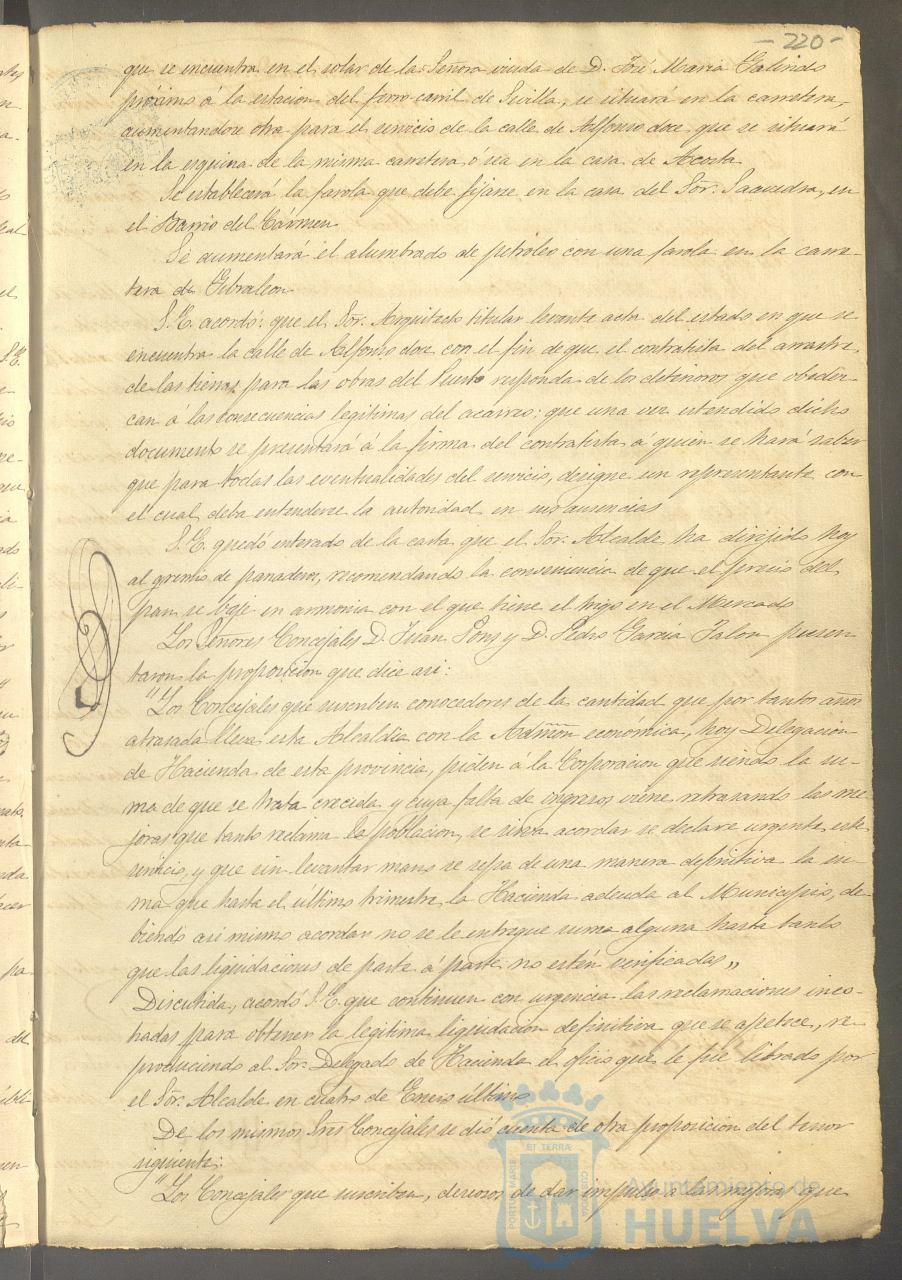 - 220 -
que se encuentra en el solar de la Señora viuda de D. José Maria Galindo
próximo á la estacion del ferro-carril de Sevilla, se situará en la carretera,
aumentandose otra para el servicio de la calle de Alfonso doce que se situará
en la esquina de la misma carretera, ó sea en la casa de Acosta
Se establecerá la farola que debe fijarse en la casa del Sor. Saavedra, en
el Barrio del Cármen
Se aumentará el alumbrado de petróleo con una farola en la carre-
tera de Gibraleon
S.E. acordó: que el Sor. Arquitecto titular levante acta del estado en que se
encuentra la calle de Alfonso doce con el fin de que el contratista del arrastre
de las tierras para las obras del Puerto responda de los deterioros que obedez-
can á las consecuencias legitimas del acarreo; que una vez estendido dicho
documento se presentará á la firma del contratista á quien se hará saber
que para todas las eventualidades del servicio, designe un representante con
el cual deba entenderse la autoridad en sus ausencias
S.E. quedó enterado de la carta que el Sor. Alcalde ha dirijido hoy
al gremio de panaderos, recomendando la conveniencia de que el precio del
pan se baje en armonia con el que tiene el trigo en el Mercado
Los Señores Concejales D. Juan Pons y D. Pedro Garcia Jalon presen
taron la proposicion que dice asi:
"Los Concejales que suscriben conocedores de la cantidad que por tantos años
atrasada lleva esta Alcaldia con la Admon económica, hoy Delegacion
de Hacienda de esta provincia, piden a la Corporacion que siendo la su-
ma de que se trata crecida y cuya falta de ingresos viene retrasando las me
joras que tanto reclama la poblacion, se sirva acordar se declare urgente este
servicio, y que sin levantar mano se sepa de una manera definitiva la su-
ma que hasta el último trimestre la Hacienda adeuda al Municipio, de-
biendo asi mismo acordar no se le entregue suma alguna hasta tanto
que las liquidaciones de parte á parte no estén verificadas„
Discutida, acordó S.E. que continuen con urgencia las reclamaciones incoa-
hadas para obtener la legitima liquidacion definitiva que se apetece, re
produciendo al Sor. Delegado de Hacienda el oficio que le fué librado por
el Sor. Alcalde en cuatro de Enero último
De los mismos Sres Concejales se dió cuenta de otra proposicion del tenor
siguiente:
"Los Concejales que suscriben, deseosos de dar impulso a las mejoras que
Ayuntamiento de
HUELVA